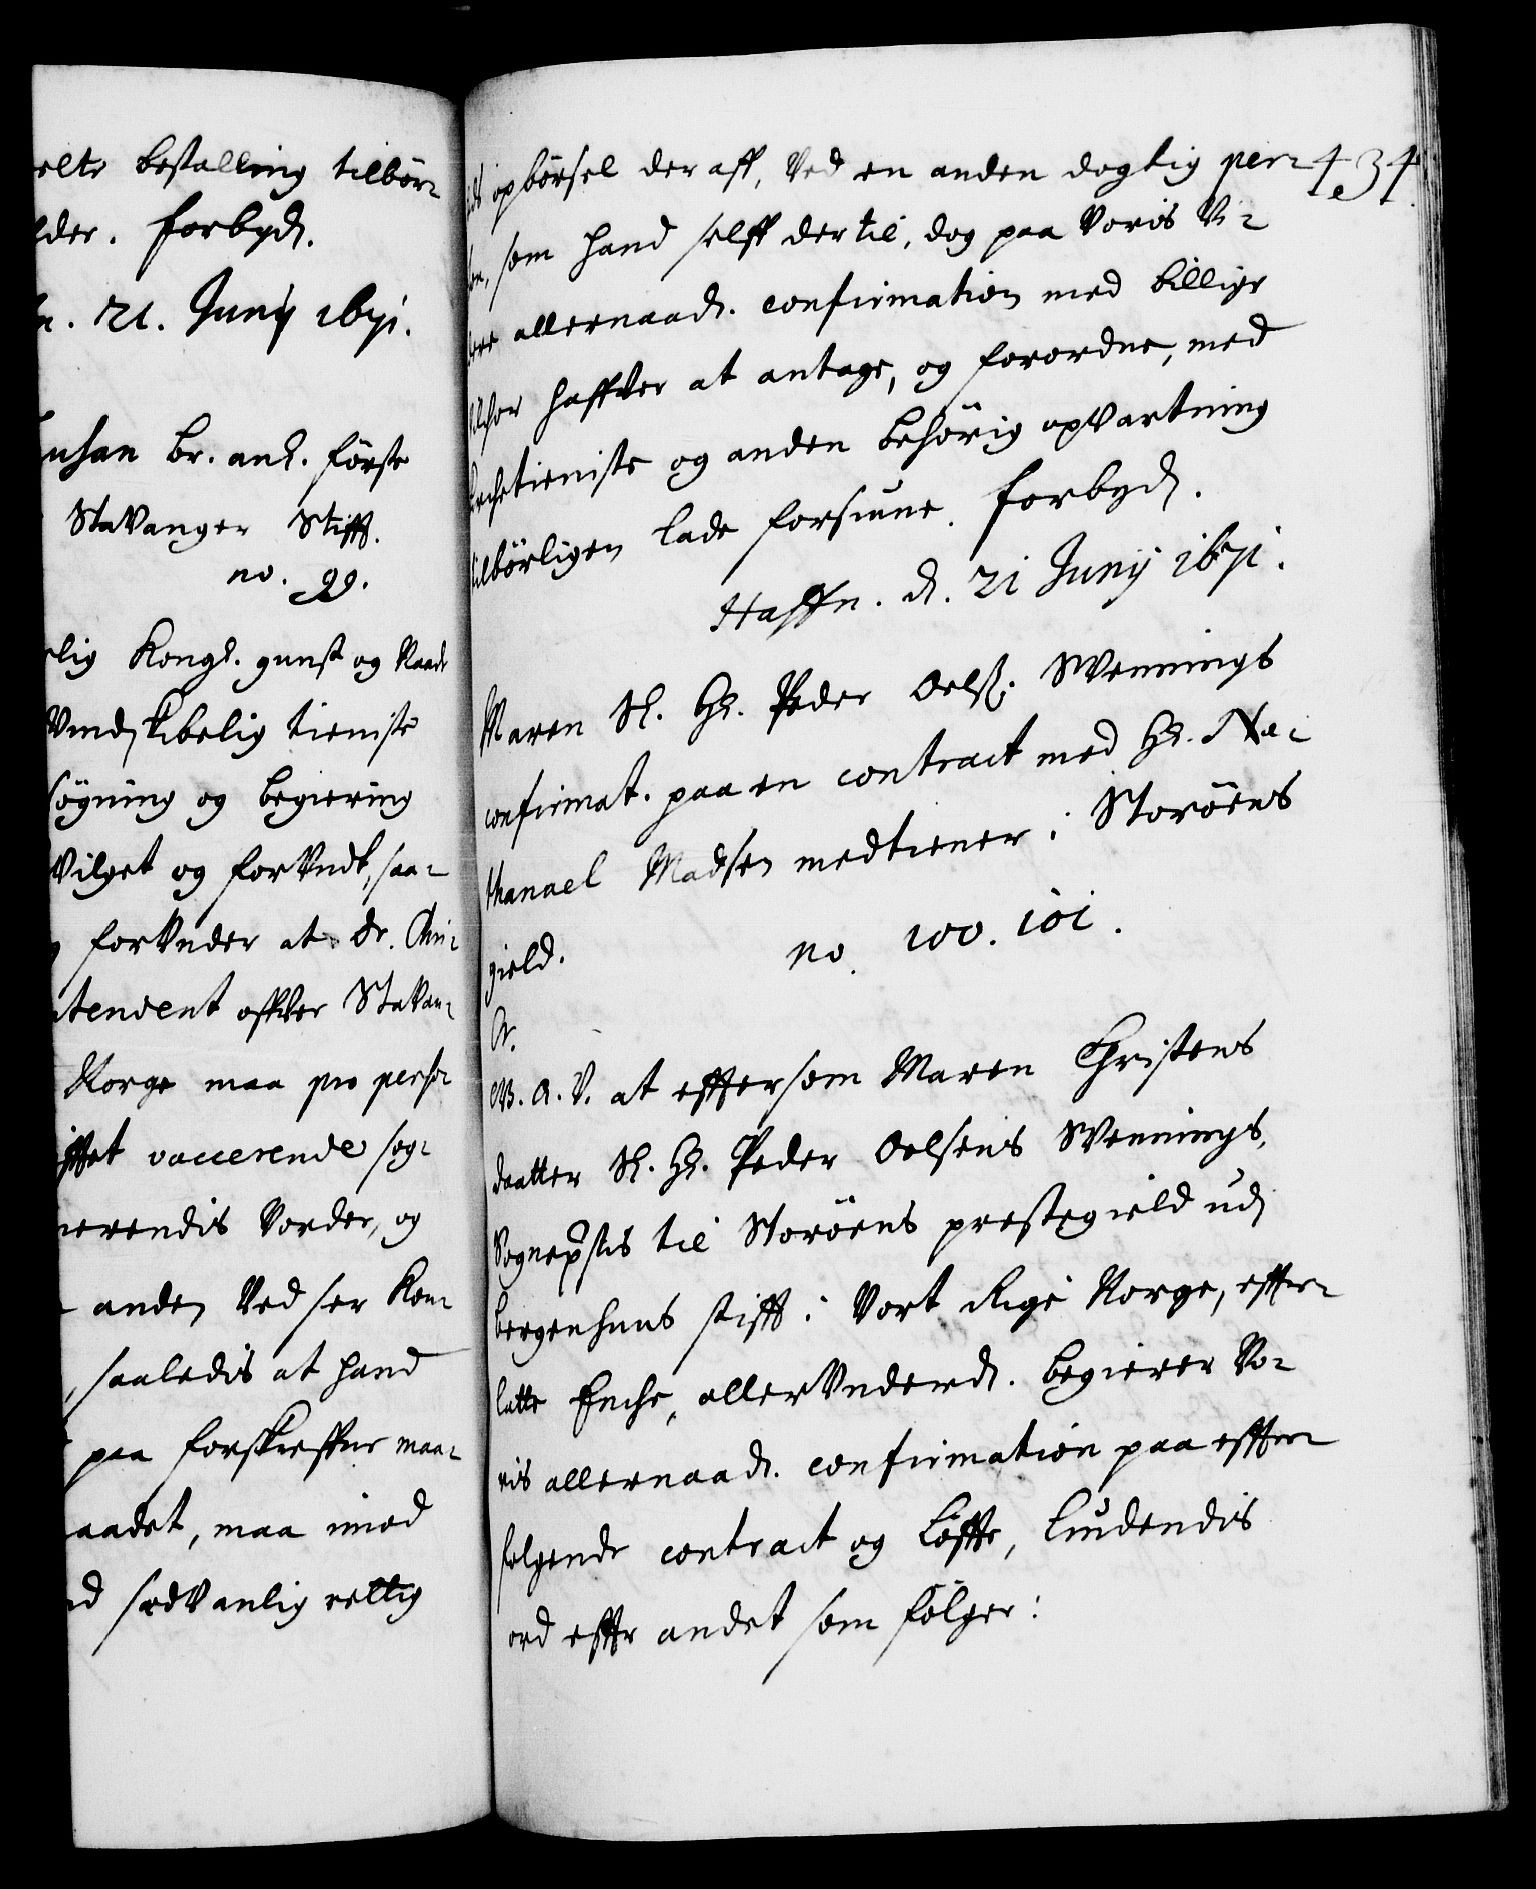 elte bestalling tilbör-
lder. forbyd.
n. 21. Junij 1671.
nhan br. anl. förste
StaVanger Stifft.
no. 99.
rlig Kongl. gunst og Naade
Vindskibelig tieniste
søgning og begiering
Vilget og forVndt, saa-
forVnder at Dr. Chri-
tendent offver StaVan-
Norge maa pro perso-
stifftet vaccerende sog-
nerendis Vorder, og
anden Ved ser Kom-
, saaledis at hand
paa forskreffne maa-
aadet, maa imod
ed sædVanlig rettig
ds opbörsel der aff, Ved en anden dogtig per- 434.
son, som hand selff der til, dog paa Voris Vi-
dere allernaad. confirmation med billige
Vilchor haffver at antage, og forordne, med
Kirchetieniste og anden behörig opVartning
tilbörligen lade forsiune. forbyd.
Haffn. d. 21 Junij 1671.
Maren Sl. Hr. Peder Oelss. SVennings
confirmat. paa en contract med Hr. Na-
thanael Madsen medtiener i Storöens
gield.
no. 100. 101.
Gr.
W. A. V. at effter som Maren Christens
daatter Sl. Hr. Peder Oelsens SVennings,
Sogneprsts til Storöens prestegield udj
bergenhuus stifft i Vort Rige Norge, effter-
latte Enche, allerVnderd. begierer Vo-
ris allernaad. confirmation paa effter-
folgende contract og Löffte, liudendis
ord effter andet som fölger: